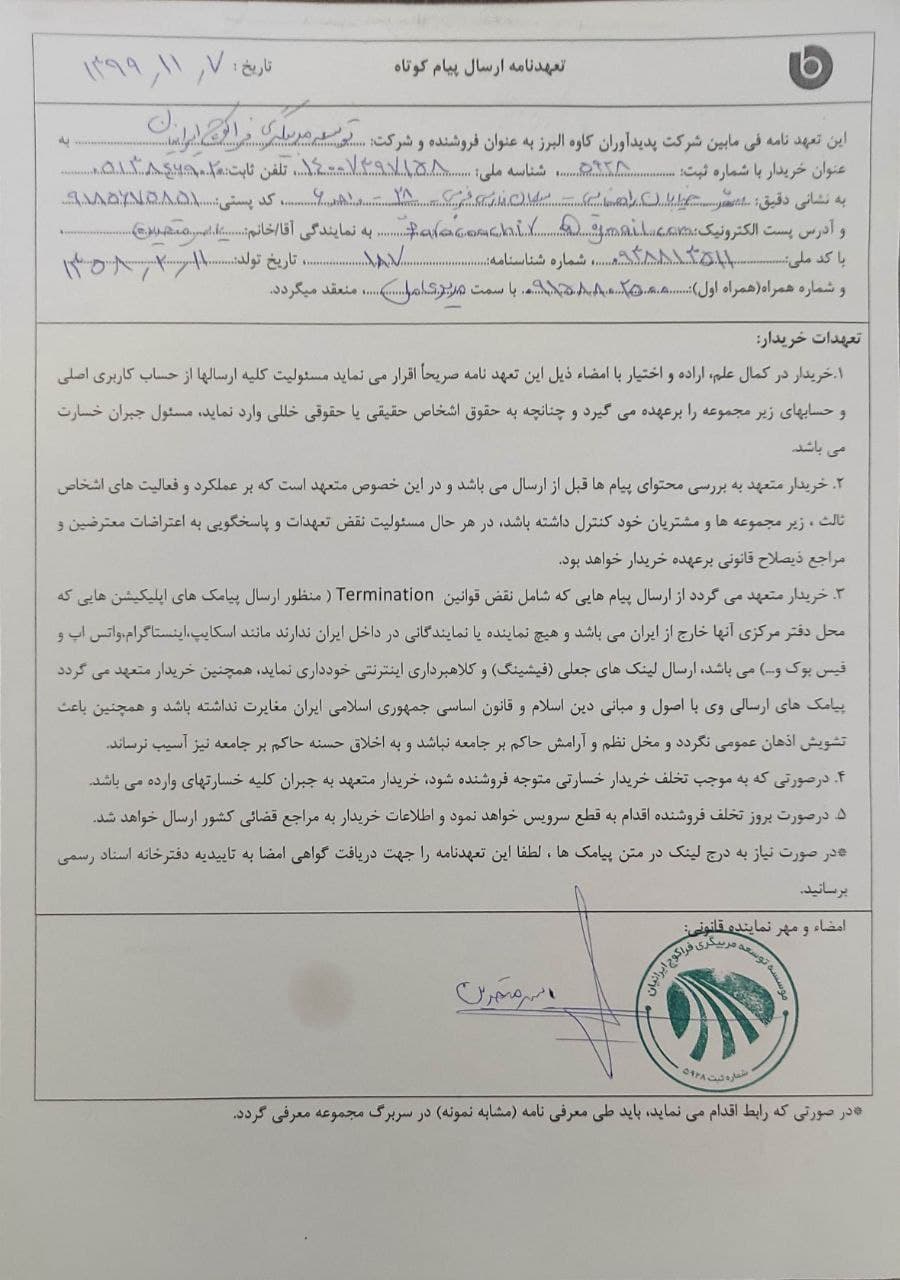 تعهدنامه ارسال پیام کوتاه
تاریخ: ۱۳۹۹/۱۱/۷
این تعهد نامه فی مابین شرکت پدیدآوران کاوه البرز به عنوان فروشنده و شرکت: توسعه مربیگری فراکوچ ایرانیان به
عنوان خریدار با شماره ثبت: ۵۹۲۸، شناسه ملی: ۱۴۰۰۷۳۹۷۱۵۸، تلفن ثابت:
به نشانی دقیق: خیابان راهنمایی - - ۳۸ - واحد ۶، کد پستی:
و آدرس پست الکترونیک: @gmail.com به نمایندگی آقا/خانم:
با کد ملی:، شماره شناسنامه: ۱۸۷، تاریخ تولد: ۱۳۵۸/۲/۱۱
و شماره همراه(همراه اول): ۰۹۱۵۸۸۰۲۵۰۰ با سمت مدیرعامل، منعقد میگردد.
تعهدات خریدار:
۱.خریدار در کمال علم، اراده و اختیار با امضاء ذیل این تعهد نامه صریحاً اقرار می نماید مسئولیت کلیه ارسالها از حساب کاربری اصلی
و حسابهای زیر مجموعه را برعهده می گیرد و چنانچه به حقوق اشخاص حقیقی یا حقوقی خللی وارد نماید، مسئول جبران خسارت
می باشد.
۲. خریدار متعهد به بررسی محتوای پیام ها قبل از ارسال می باشد و در این خصوص متعهد است که بر عملکرد و فعالیت های اشخاص
ثالث ، زیر مجموعه ها و مشتریان خود کنترل داشته باشد، در هر حال مسئولیت نقض تعهدات و پاسخگویی به اعتراضات معترضین و
مراجع ذیصلاح قانونی برعهده خریدار خواهد بود.
۳. خریدار متعهد می گردد از ارسال پیام هایی که شامل نقض قوانین Termination ( منظور ارسال پیامک های اپلیکیشن هایی که
محل دفتر مرکزی آنها خارج از ایران می باشد و هیچ نماینده یا نمایندگانی در داخل ایران ندارند مانند اسکایپ،اینستاگرام،واتس اپ و
فیس بوک و...) می باشد، ارسال لینک های جعلی (فیشینگ) و کلاهبرداری اینترنتی خودداری نماید، همچنین خریدار متعهد می گردد
پیامک های ارسالی وی با اصول و مبانی دین اسلام و قانون اساسی جمهوری اسلامی ایران مغایرت نداشته باشد و همچنین باعث
تشویش اذهان عمومی نگردد و مخل نظم و آرامش حاکم بر جامعه نباشد و به اخلاق حسنه حاکم بر جامعه نیز آسیب نرساند.
۴. درصورتی که به موجب تخلف خریدار خسارتی متوجه فروشنده شود، خریدار متعهد به جبران کلیه خسارتهای وارده می باشد.
۵. درصورت بروز تخلف فروشنده اقدام به قطع سرویس خواهد نمود و اطلاعات خریدار به مراجع قضائی کشور ارسال خواهد شد.
*در صورت نیاز به درج لینک در متن پیامک ها ، لطفا این تعهدنامه را جهت دریافت گواهی امضا به تاییدیه دفترخانه اسناد رسمی
برسانید.
امضاء و مهر نماینده قانونی:
موسسه توسعه مربیگری فراکوچ ایرانیان
شماره ثبت ۵۹۲۸
*در صورتی که رابط اقدام می نماید، باید طی معرفی نامه (مشابه نمونه) در سربرگ مجموعه معرفی گردد.